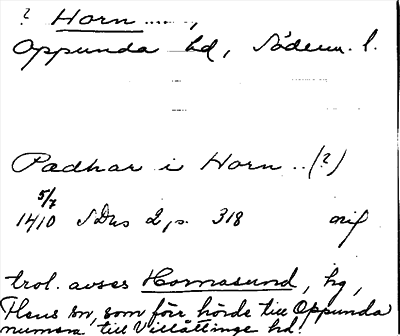 ? Horn ......,
Oppunda hd, Södem. l.
Padhar i Horn .. (?)
5/7
1410 SDns 2, s. 318 orig
trol. avses Hornasund, hg,
Flens sn, som förr hörde till Oppunda
numera till Villåttinge hd.